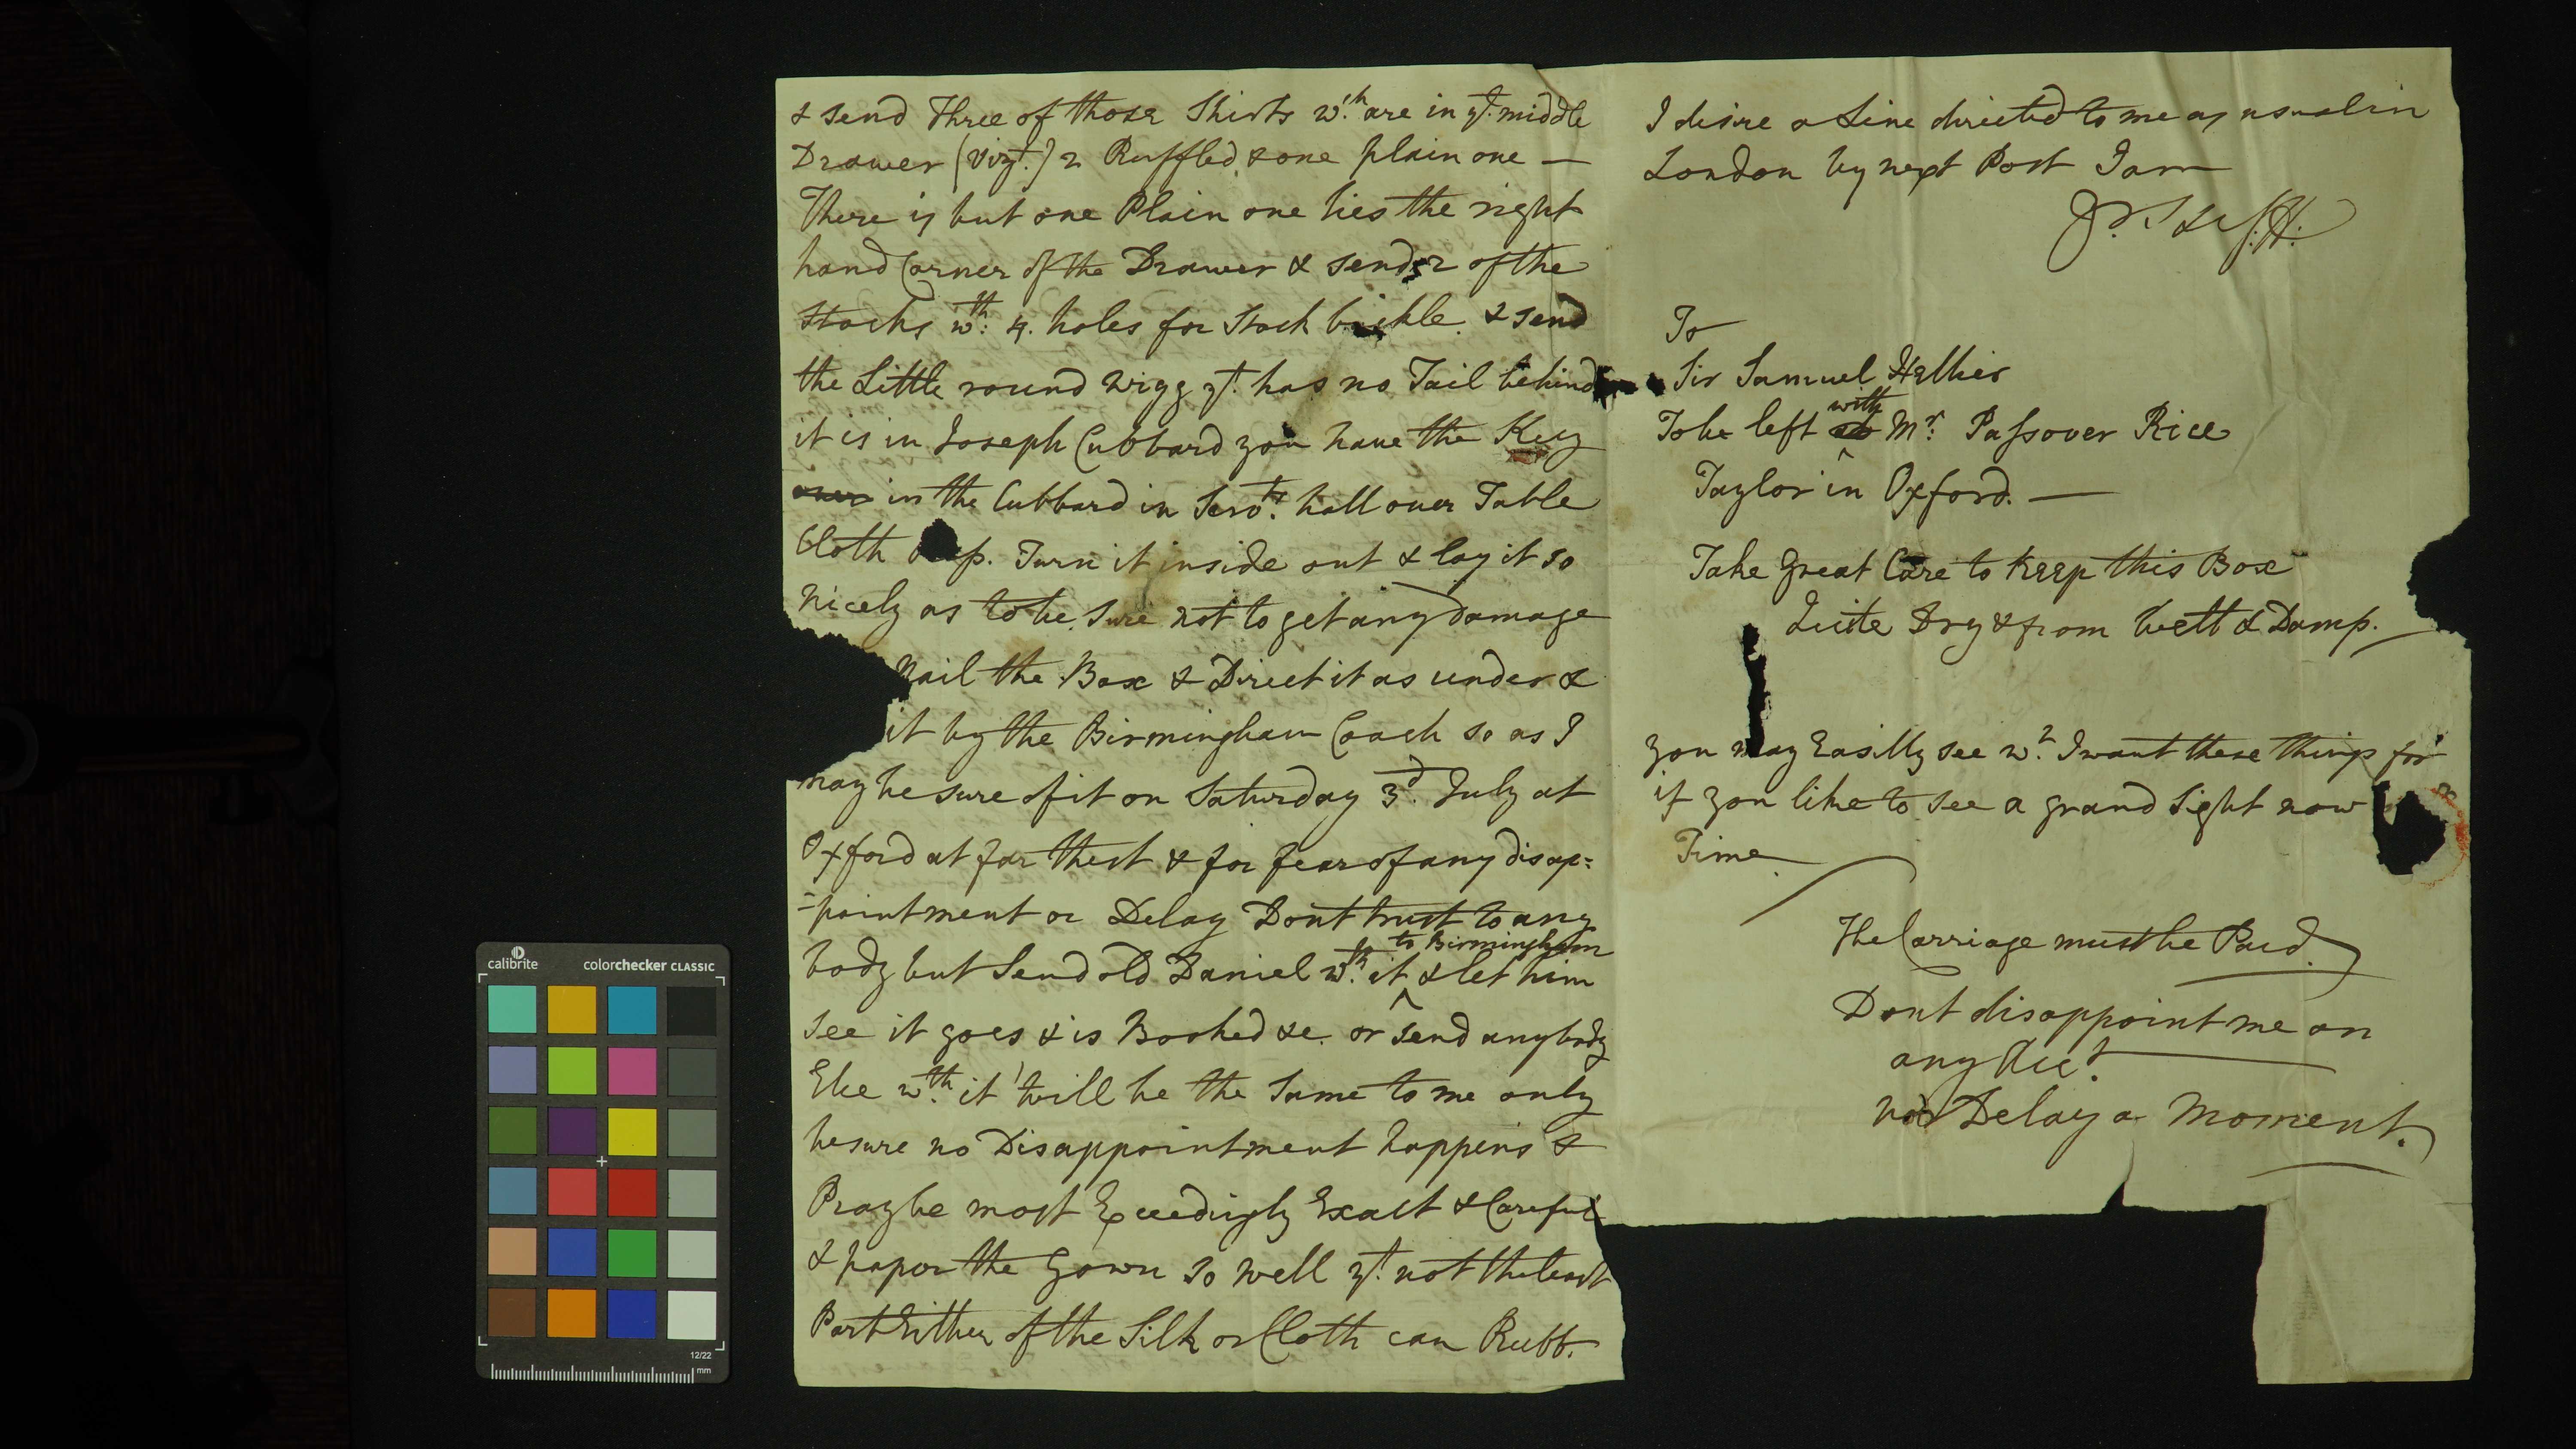 & send Three of those Shirts wch. are in yt. middle
Drawer (Vizt.) 2 Ruffled & one plain one —
There is but one Plain one lies the right
hand Corner of the Drawer & send 2 of the
Stocks wth. 4. holes for Stock buckle. & send
the Little round Wigg yt. has no Tail behind
it is in Joseph Cubbard you have the Key
in the Cubbard in Servts. hall over Table
Cloth Turn it inside out & lay it so
nicely as to be sure not to get any Damage
Nail the Box & Direct it as under &
it by the Birmingham Coach so as I
may be sure of it on Saturday 3d. July at
Oxford at far thest & for fear of any disap=
=pointment or Delay Dont trust to any
body but Send old Daniel wth. it to Birmingham & let him
see it goes & is Booked &c. or send anybody
Else wth. it 'twill be the Same to me only
be sure no Disappointment happens &
Pray be most Exceedingly Exact & Careful
& paper the Gown so well yt. not the least
Part Either of the Silk or Cloth can Rubb.
I desire a Line directed to me as usual in
London by next Post I am
To
Sir Samuel Hellier
To be left with Mr. Passover Rice
Taylor in Oxford. —
Take Great Care to Keep this Box
Quite Dry & from Wett & Damp.
you may Easilly see wt. I want these things for
if you like to see a grand Sight now
Time
The Carriage must be Paid.
Dont disappoint me on
any Acct.
nor Delay a Moment.
calibrite colorchecker CLASSIC
12/22
mm